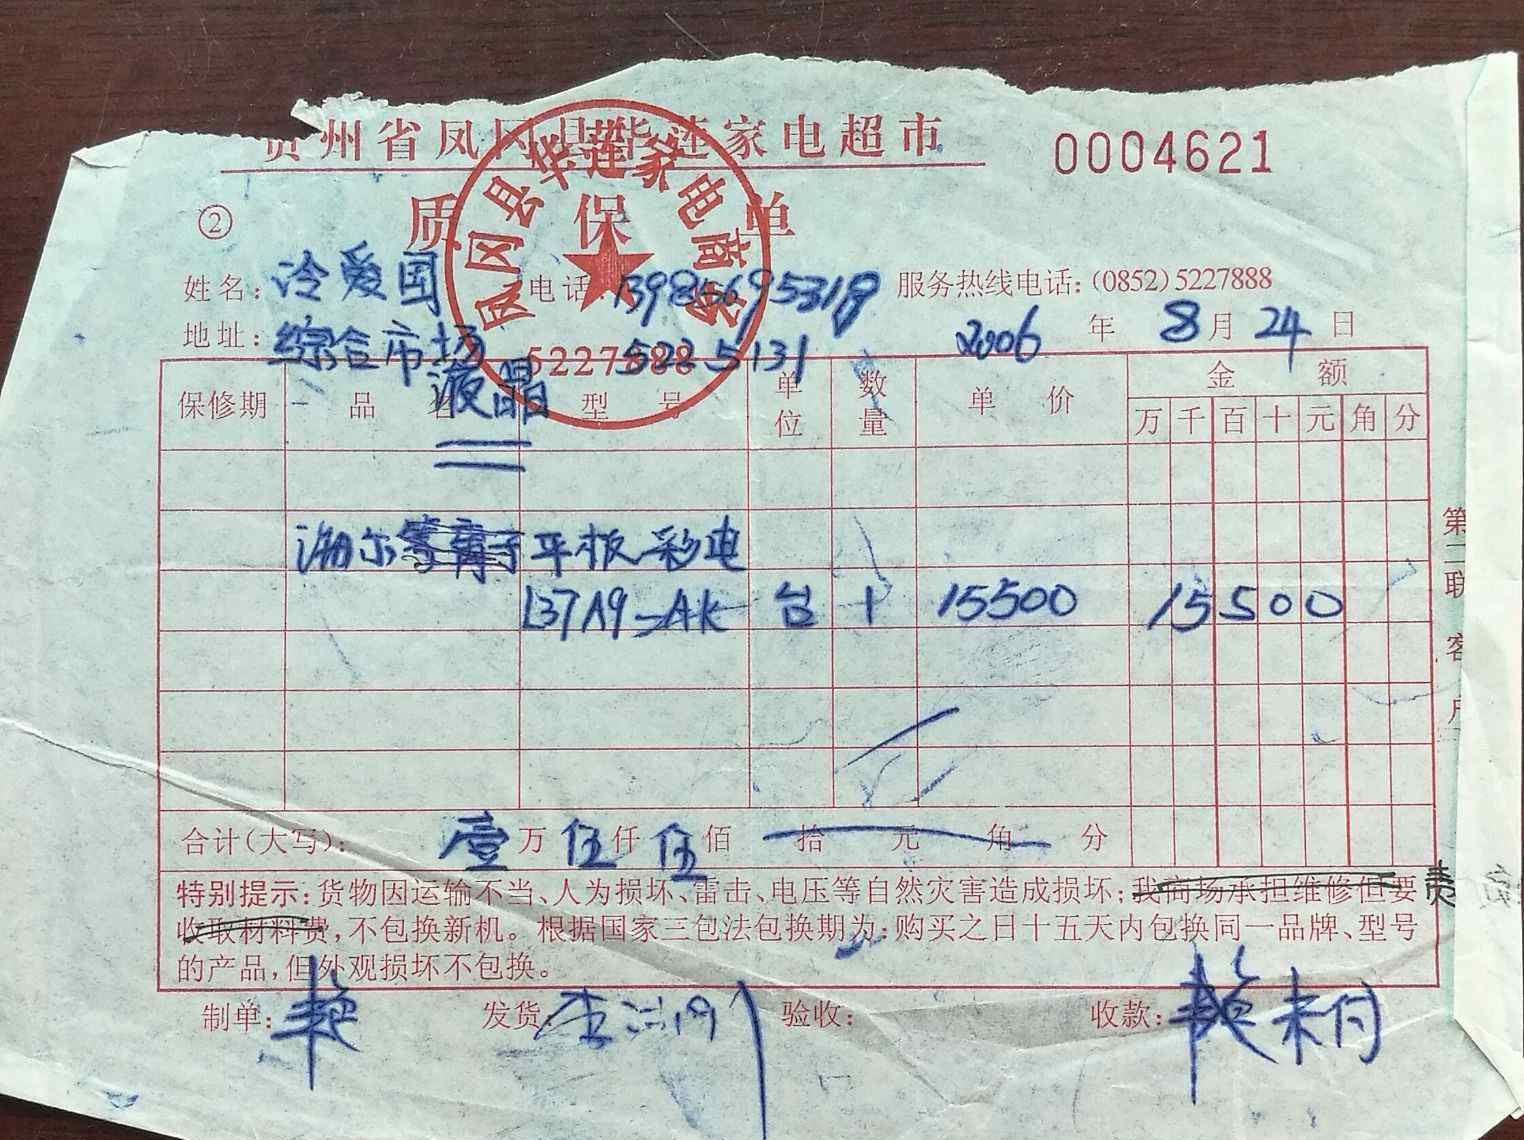 贵州省凤冈县华莲家电超市 0004621
② 质保单
凤冈县华莲家电商场
5227888
姓名：冷爱国 电话：13985695319 服务热线电话：(0852)5227888
地址：综合市场 5225131 2006年8月24日
保修期 品名 型号 单位 数量 单价 金额
液晶
万 千 百 十 元 角 分
海尔等离子平板彩电
L37A9-AK 台 1 15500 15500
合计(大写)：壹万伍仟伍佰拾元角分
特别提示：货物因运输不当、人为损坏、雷击、电压等自然灾害造成损坏；我商场承担维修但要 责
收取材料费，不包换新机。根据国家三包法包换期为：购买之日十五天内包换同一品牌、型号
的产品，但外观损坏不包换。
制单：艳 发货：李 验收： 收款：艳 未付
第二联 客户